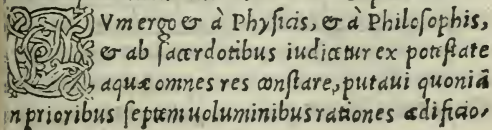 CVm ergo & à Physicis, & à Philosophis,
& ab sacerdotibus iudicetur ex potestate
aquæ omnes res constare, putaui quoniā
in prioribus septem uoluminibus rationes ædificio-